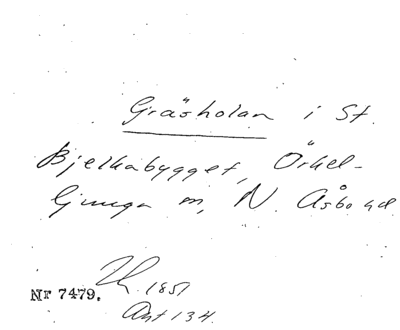 Gräsholan i St.
Bjelkabygget, Örkel-
ljunga m, N. Åsbo hd
1851
Nr 7479.
Akt 134.